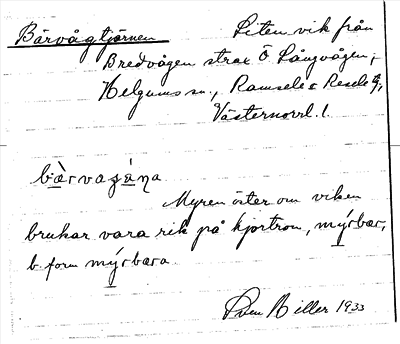 Bärvågtjärnen Liten vik från
Bredvågen strax Ö Långvågen,
Helgums sn., Ramsele & Resele tg,
Västernorrl. l.
bæ̀rvagɟána
Myren öster om viken
brukar vara rik på hjortron, mýrbær,
b. form mýrbæra.
Sven Biller 1933